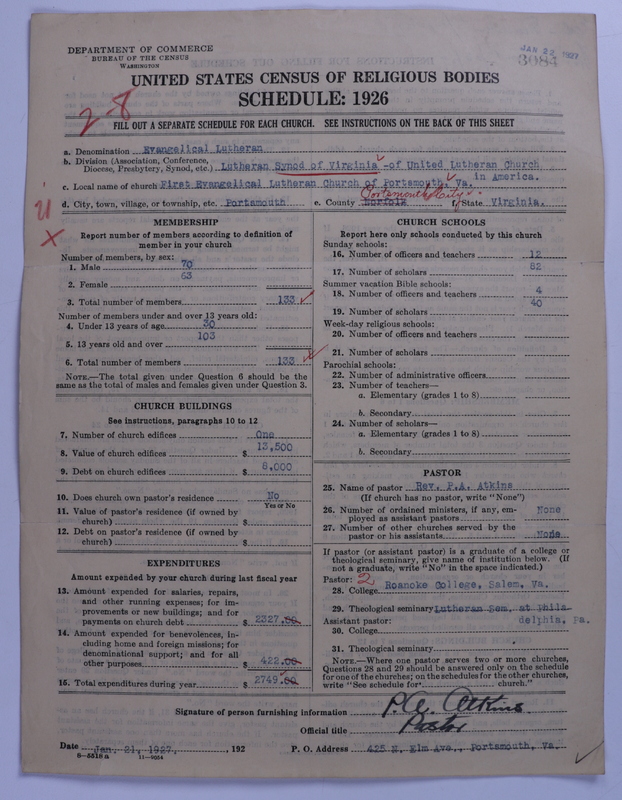 DEPARTMENT OF COMMERCE
BUREAU OF THE CENSUS
WASHINGTON
JAN 22 1927
3084
UNITED STATES CENSUS OF RELIGIOUS BODIES
SCHEDULE: 1926
2-8
FILL OUT A SEPARATE SCHEDULE FOR EACH CHURCH. SEE INSTRUCTIONS ON THE BACK OF THIS SHEET
a. Denomination Evangelical Lutheran
b. Division (Association, Conference, Diocese, Presbytery, Synod, etc.) Lutheran Synod of Virginia -of United Lutheran Church
in America.
c. Local name of church First Evangelical Lutheran Church of Portsmouth, Va.
Portsmouth City
d. City, town, village, or township, etc. Portsmouth e. County Norfolk f. State Virginia.
MEMBERSHIP
Report number of members according to definition of
member in your church
Number of members, by sex:
1. Male 70
2. Female 63
3. Total number of members 133
Number of members under and over 13 years old:
4. Under 13 years of age 30
5. 13 years old and over 103
6. Total number of members 133
NOTE.—The total given under Question 6 should be the
same as the total of males and females given under Question 3.
CHURCH BUILDINGS
See instructions, paragraphs 10 to 12
7. Number of church edifices One
8. Value of church edifices $ 13,500
9. Debt on church edifices $ 8,000
10. Does church own pastor's residence No
Yes or No
11. Value of pastor's residence (if owned by
church) $
12. Debt on pastor's residence (if owned by
church) $
EXPENDITURES
Amount expended by your church during last fiscal year
13. Amount expended for salaries, repairs,
and other running expenses; for im-
provements or new buildings; and for
payments on church debt $ 2327.00
14. Amount expended for benevolences, in-
cluding home and foreign missions; for
denominational support; and for all
other purposes $ 422.00
15. Total expenditures during year $ 2749.00
CHURCH SCHOOLS
Report here only schools conducted by this church
Sunday schools:
16. Number of officers and teachers 12
17. Number of scholars 82
Summer vacation Bible schools:
18. Number of officers and teachers 4
19. Number of scholars 40
Week-day religious schools:
20. Number of officers and teachers
21. Number of scholars
Parochial schools:
22. Number of administrative officers
23. Number of teachers—
a. Elementary (grades 1 to 8)
b. Secondary
24. Number of scholars—
a. Elementary (grades 1 to 8)
b. Secondary
PASTOR
25. Name of pastor Rev. P.A. Atkins
(If church has no pastor, write "None")
26. Number of ordained ministers, if any, em-
ployed as assistant pastors None
27. Number of other churches served by the
pastor or his assistants None
If pastor (or assistant pastor) is a graduate of a college or
theological seminary, give name of institution below. (If
not a graduate, write "No" in the space indicated.)
Pastor: 2
28. College Roanoke College, Salem, Va.
29. Theological seminary Lutheran Sem. at Phila-
Assistant pastor: delphia, Pa.
30. College
31. Theological seminary
NOTE.—Where one pastor serves two or more churches,
Questions 28 and 29 should be answered only on the schedule
for one of the churches; on the schedules for the other churches,
write "See schedule for church."
Signature of person furnishing information P.A. Atkins
Official title Pastor
Date Jan, 21, 1927, , 192 P. O. Address 425 N. Elm Ave., Portsmouth, Va.
8-5518 a 11-9054